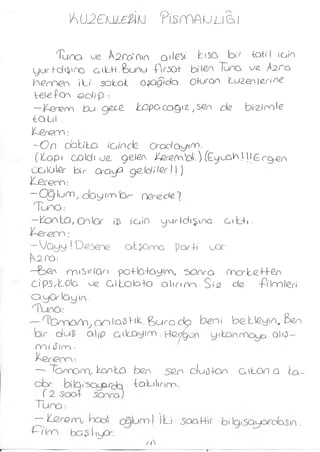 KUZENLERİN PİSMANLIĞI
Tuna ve Azra'nın ailesi kısa bir tatil icin
yurtdışına cıktı. Bunu fırsat bilen Tuna ve Azra
hemen iki sokak aşağıda oturan kuzenlerine
telefon edip:
-Kerem bu gece kopacağız, sen de bizimle
takıl.
Kerem:
-On dakika icinde oradayım.
(Kapı caldı ve gelen Kerem'dir.)(Eyvah!!!Ergen
üclüler bir araya geldiler!!)
Kerem:
-Oğlum, dayımlar nerede?
Tuna:
-Kanka, onlar iş icin yurtdışına cıktı.
Kerem:
-Vayy! Desene akşama parti var
Azra:
-Ben mısırları patlatayım, sonra marketten
cips, kola ve cikolata alırım Siz de filmleri
ayarlayın.
Tuna:
-Tamam, anlaştık. Burada beni bekleyin. Ben
bir duş alıp cıkayım. Hergün yıkanmaya alış-
mışım.
Kerem:
-Tamam, kanka ben sen duştan cıkana ka-
dar bilgisayarda takılırım.
(2 saat sonra)
Tuna:
-Kerem, hadi oğlum! İki saattir bilgisayardasın.
Film başlıyor.